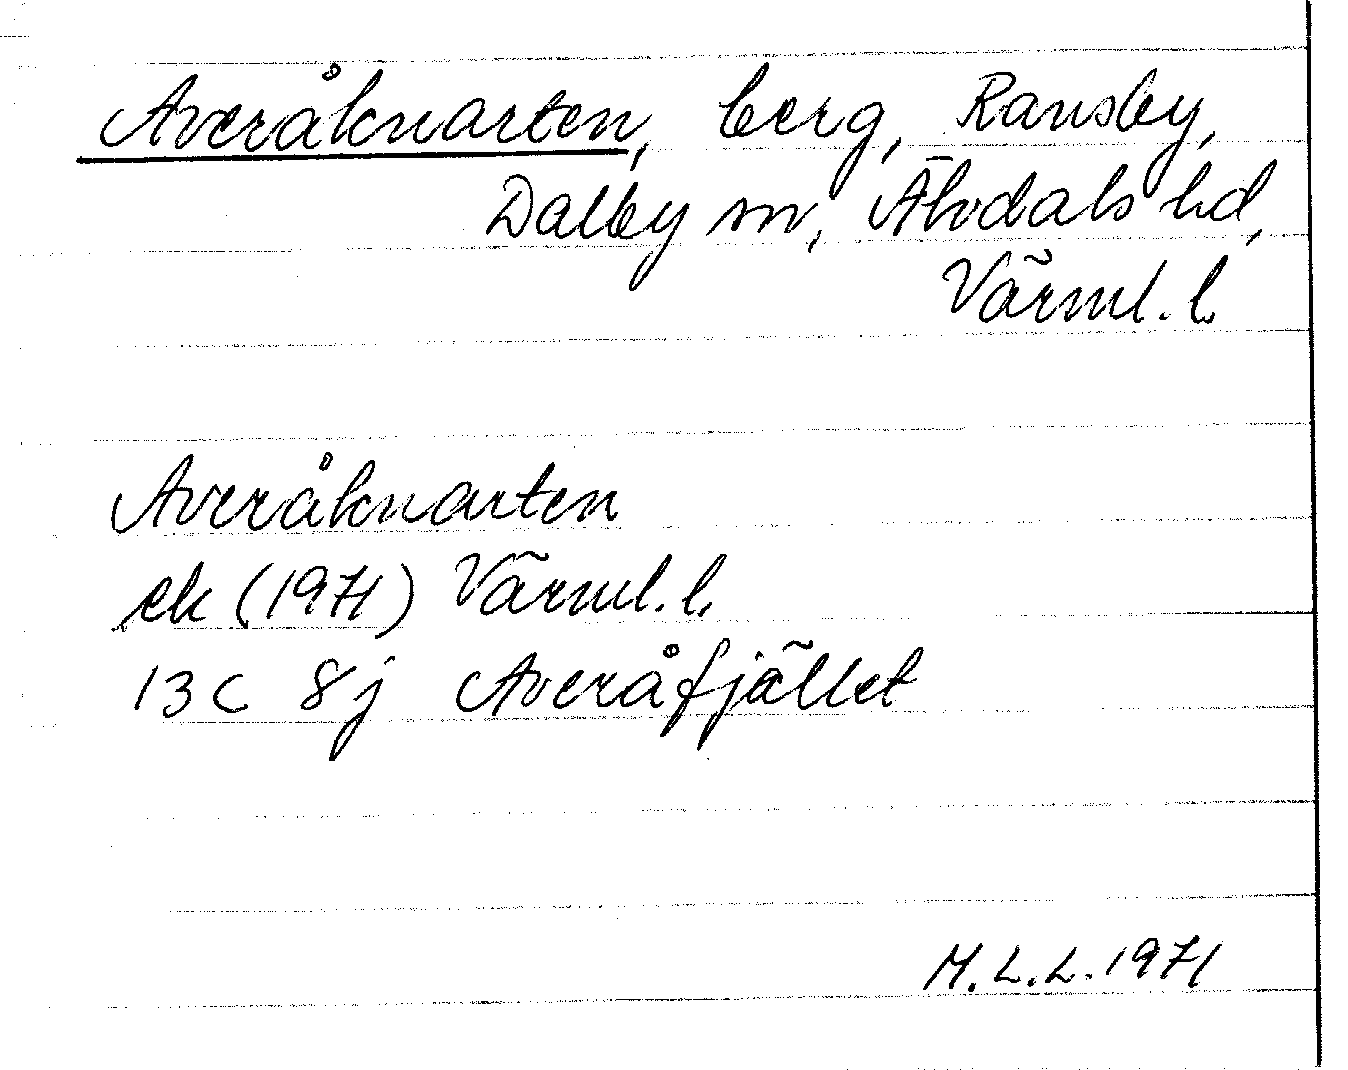 Averåknarten, berg, Ransby,
Dalby sn, Älvdals hd,
Värml. l.
Averåknarten
ek (1971) Värml. l.
13C 8j Averåfjället
M.L.L. 1971